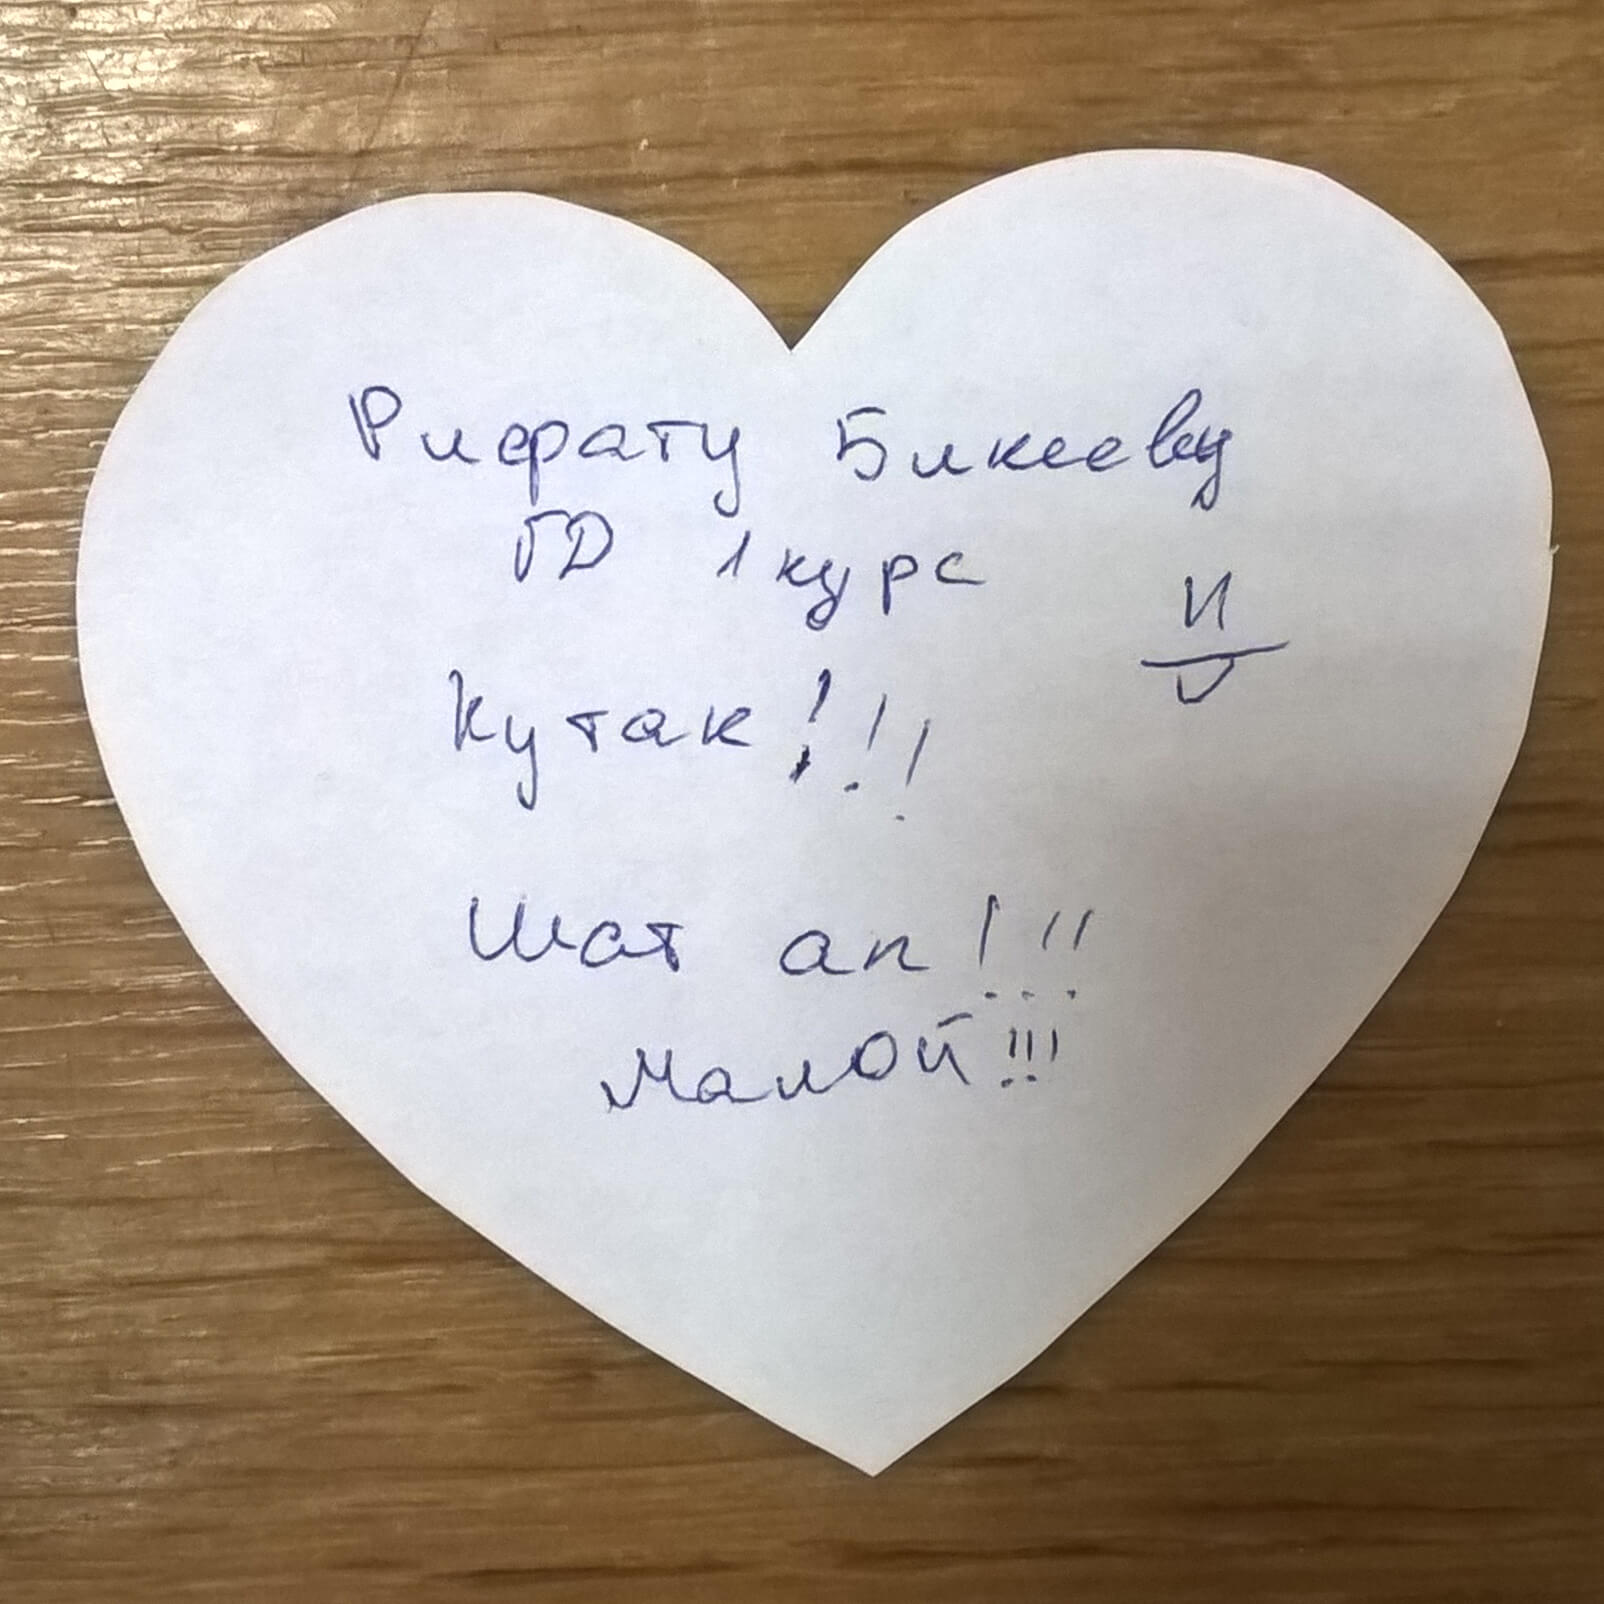 Рифату Бикееву
ГД 1 курс
Кутак!!!
Шат ап!!!
Малой!!!